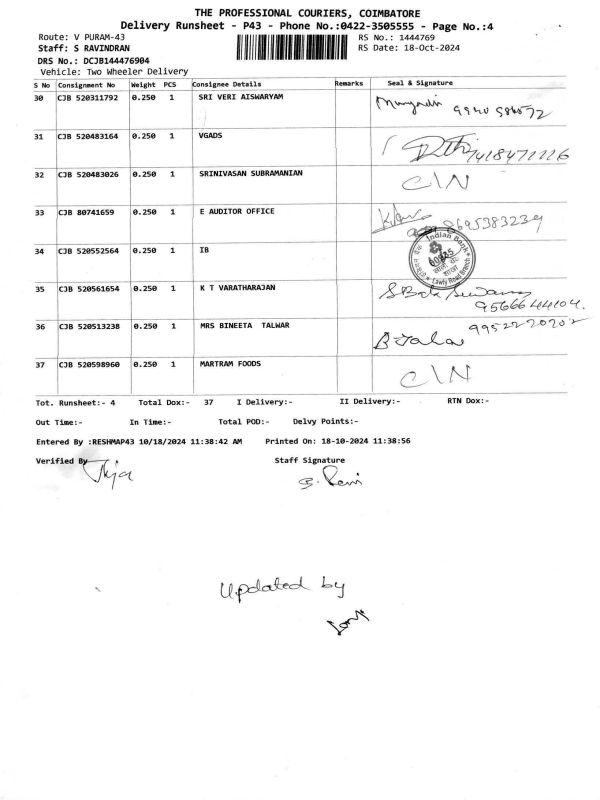 THE PROFESSIONAL COURIERS, COIMBATORE
Delivery Runsheet - P43 - Phone No.:0422-3505555 - Page No.:4
Route: V PURAM-43 RS No.: 1444769
Staff: S RAVINDRAN RS Date: 18-Oct-2024
DRS No.: DCJB144476904
Vehicle: Two Wheeler Delivery
S No Consignment No Weight PCS Consignee Details Remarks Seal & Signature
30 CJB 520311792 0.250 1 SRI VERI AISWARYAM
31 CJB 520483164 0.250 1 VGADS 7418471116
32 CJB 520483026 0.250 1 SRINIVASAN SUBRAMANIAN C\N
33 CJB 80741659 0.250 1 E AUDITOR OFFICE 8695383239
34 CJB 520552564 0.250 1 IB Indian Bank
35 CJB 520561654 0.250 1 K T VARATHARAJAN
36 CJB 520513238 0.250 1 MRS BINEETA TALWAR 9952220202
37 CJB 520598960 0.250 1 MARTRAM FOODS C\N
Tot. Runsheet:- 4 Total Dox:- 37 I Delivery:- II Delivery:- RTN Dox:-
Out Time:- In Time:- Total POD:- Delvy Points:-
Entered By :RESHMAP43 10/18/2024 11:38:42 AM Printed On: 18-10-2024 11:38:56
Verified By Staff Signature
Updated by